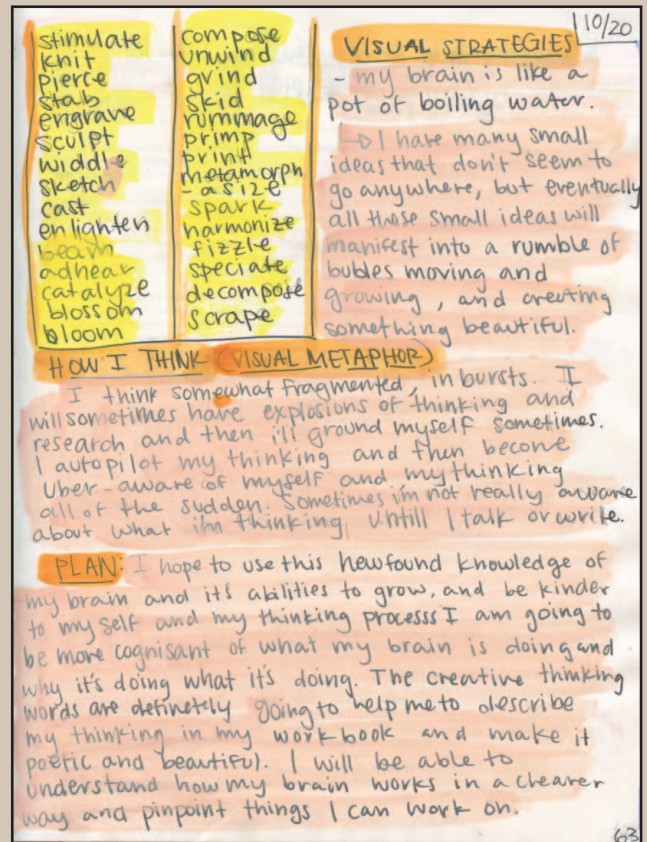 stimulate
knit
pierce
stab
engrave
sculpt
widdle
sketch
cast
enlighten
beam
adhear
catalyze
blossom
bloom
compose
unwind
grind
skid
rummage
primp
print
metamorph
-asize
spark
harmonize
fizzle
speciate
decompose
scrape
110/20
VISUAL STRATEGIES
- my brain is like a
pot of boiling water.
→ I have many small
ideas that don't seem to
go anywhere, but eventually
all those small ideas will
manifest into a rumble of
bubles moving and
growing, and creating
something beautiful.
HOW I THINK (VISUAL METAPHOR)
I think somewhat fragmented, in bursts. I
will sometimes have explosions of thinking and
research and then i'll ground myself sometimes.
I autopilot my thinking and then become
Uber-aware of myself and my thinking
all of the sudden. Sometimes i'm not really aware
about what i'm thinking, untill I talk or write.
PLAN: I hope to use this newfound knowledge of
my brain and it's abilities to grow, and be kinder
to my self and my thinking processs I am going to
be more cognisant of what my brain is doing and
why it's doing what it's doing. The creative thinking
words are definetely going to help me to describe
my thinking in my workbook and make it
poetic and beautiful. I will be able to
understand how my brain works in a clearer
way and pinpoint things I can work on.
63